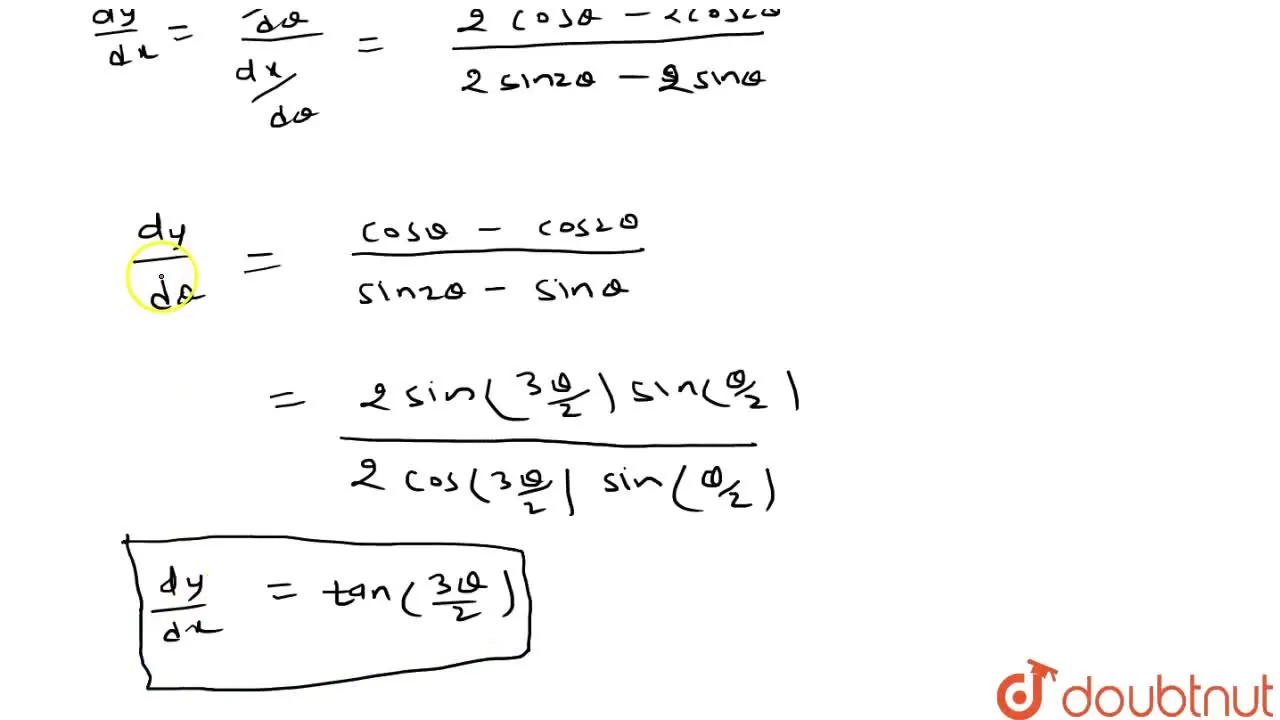 dy/dx = /dθ / dx/dθ = 2 cosθ - 2cos2θ / 2 sin2θ - 2 sinθ
dy/dθ = cosθ - cos2θ / sin2θ - sinθ
= 2 sin(3θ/2) sin(θ/2) / 2 cos(3θ/2) sin(θ/2)
dy/dx = tan(3θ/2)
doubtnut